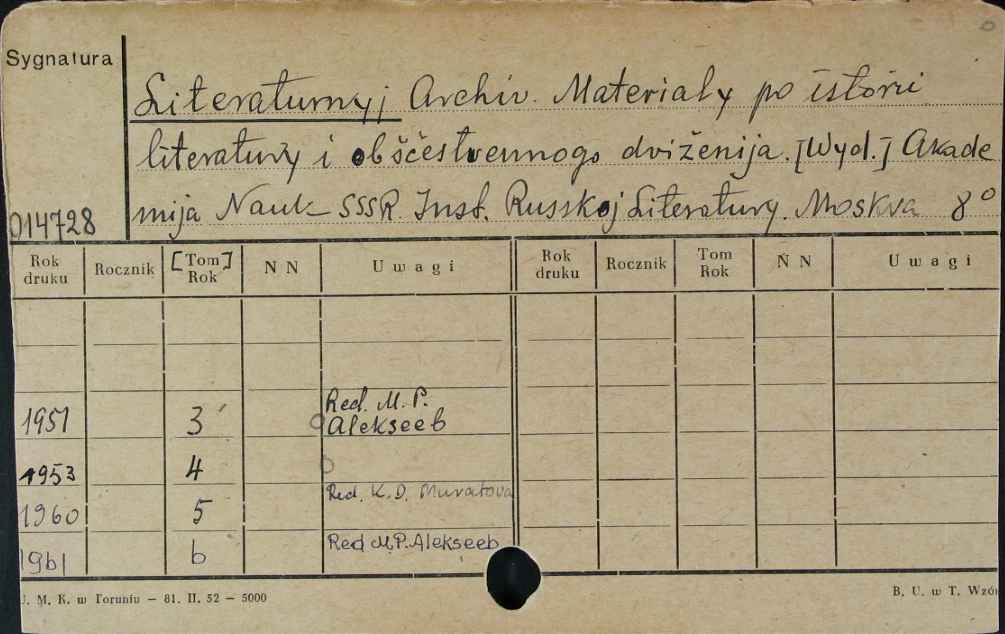 Sygnatura
Literaturnyj Archiv. Materialy po istorii
literatury i obščestvennogo dviženija. [Wyd.] Akade
mija Nauk SSSR. Inst. Russkoj Literatury. Moskva 8°
014728
Rok druku Rocznik [Tom] Rok N N Uwagi Rok druku Rocznik Tom Rok N N Uwagi
Red. M. P.
1951 3 Alekseeb
1953 4
Red. K. D. Muratova
1960 5
Red M.P. Alekseeb
1961 6
J. M. K. w Toruniu — 81. II. 52 — 5000
B. U. w T. Wzór